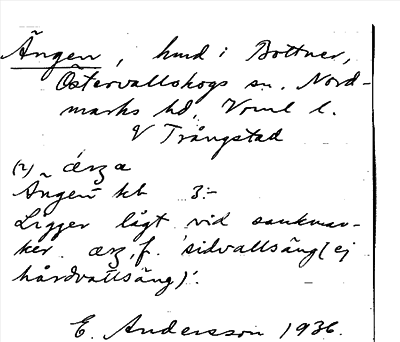 Ängen, hmd i Bottner,
Östervallskogs sn. Nord-
marks hd, Vrml l.
V Trångstad
(2) ~ ǽŋʒa
Ängen kb 3:-
Ligger lågt vid sankmar-
ker. æʒ, f. 'sidvallsäng (ej
hårdvallsäng)'.
E. Andersson 1936.